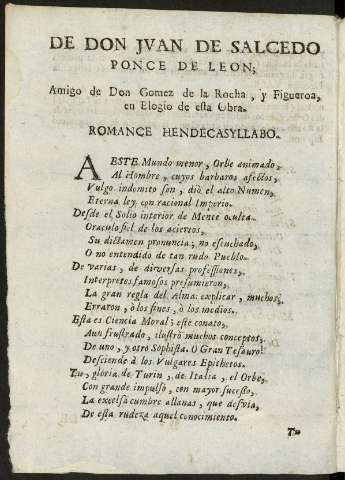 DE DON JVAN DE SALCEDO
PONCE DE LEON;
Amigo de Don Gomez de la Rocha, y Figueroa,
en Elogio de esta Obra.
ROMANCE HENDECASYLLABO.
A ESTE Mundo menor, Orbe animado,
Al Hombre, cuyos barbaros afectos,
Vulgo indomito son, diò el alto Numen,
Eterna ley con racional Imperio.
Desde el Solio interior de Mente oculta
Oraculo fiel de los aciertos,
Su dictamen pronuncia; no escuchado,
O no entendido de tan rudo Pueblo.
De varias, de diversas professiones,
Interpretes famosos presumieron,
La gran regla del Alma: explicar, muchos,
Erraron, ò los fines, ò los medios.
Esta es Ciencia Moral; este conato,
Aun frustrado, ilustrò muchos conceptos,
De uno, y otro Sophista. O Gran Tesauro!
Desciende à los Vulgares Epithetos.
Tu, gloria de Turin, de Italia, el Orbe,
Con grande impulso, con mayor sucesso,
La excelsa cumbre allanas, que desvia,
De esta rudeza aquel conocimiento.
Tu